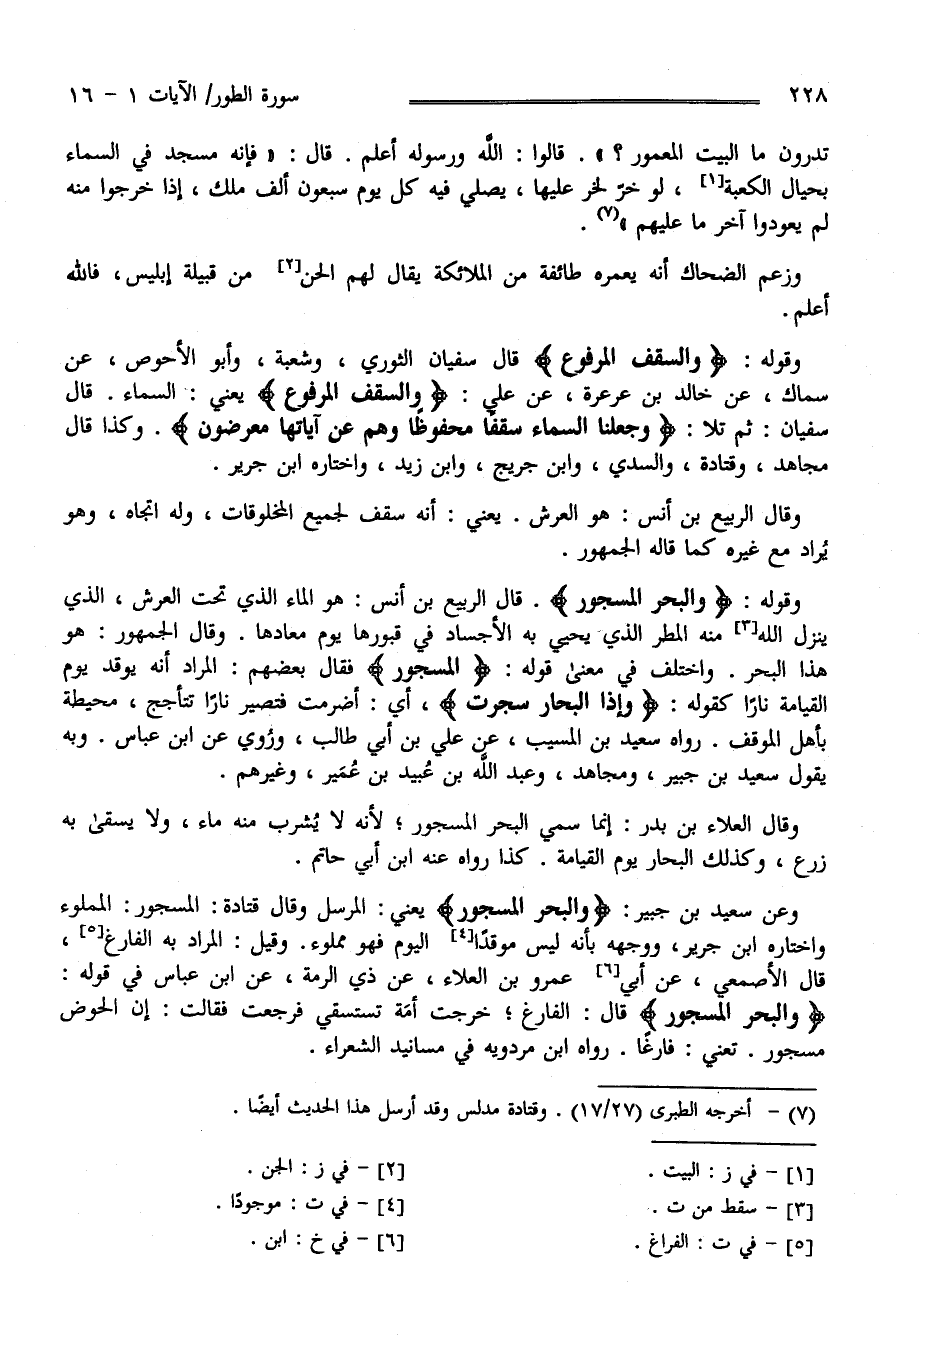 ٢٢٨ سورة الطور/ الآيات ١ - ١٦
تدرون ما البيت المعمور ؟ » . قالوا : اللَّه ورسوله أعلم . قال : « فإنه مسجد في السماء
بحيال الكعبة[١] ، لو خرّ لخر عليها ، يصلي فيه كل يوم سبعون ألف ملك ، إذا خرجوا منه
لم يعودوا آخر ما عليهم »(٧) .
وزعم الضحاك أنه يعمره طائفة من الملائكة يقال لهم الحن[٢] من قبيلة إبليس، فالله
أعلم.
وقوله : ﴿ والسقف المرفوع ﴾ قال سفيان الثوري ، وشعبة ، وأبو الأحوص ، عن
سماك ، عن خالد بن عرعرة ، عن علي : ﴿ والسقف المرفوع ﴾ يعني : السماء . قال
سفيان : ثم تلا : ﴿ وجعلنا السماء سقفًا محفوظًا وهم عن آياتها معرضون ﴾ . وكذا قال
مجاهد ، وقتادة ، والسدي ، وابن جريج ، وابن زيد ، واختاره ابن جرير .
وقال الربيع بن أنس : هو العرش . يعني : أنه سقف لجميع المخلوقات ، وله اتجاه ، وهو
يُراد مع غيره كما قاله الجمهور .
وقوله : ﴿ والبحر المسجور ﴾ . قال الربيع بن أنس : هو الماء الذي تحت العرش ، الذي
ينزل الله[٣] منه المطر الذي يحيي به الأجساد في قبورها يوم معادها . وقال الجمهور : هو
هذا البحر . واختلف في معنىٰ قوله : ﴿ المسجور ﴾ فقال بعضهم : المراد أنه يوقد يوم
القيامة نارًا كقوله : ﴿ وإذا البحار سجرت ﴾ ، أي : أضرمت فتصير نارًا تتأجج ، محيطة
بأهل الموقف . رواه سعيد بن المسيب ، عن علي بن أبي طالب ، ورُوي عن ابن عباس . وبه
يقول سعيد بن جبير ، ومجاهد ، وعبد اللَّه بن عُبيد بن عُمَير ، وغيرهم .
وقال العلاء بن بدر : إنما سمي البحر المسجور ؛ لأنه لا يُشرب منه ماء ، ولا يسقىٰ به
زرع ، وكذلك البحار يوم القيامة . كذا رواه عنه ابن أبي حاتم .
وعن سعيد بن جبير : ﴿والبحر المسجور﴾ يعني: المرسل وقال قتادة : المسجور : المملوء
واختاره ابن جرير، ووجهه بأنه ليس موقدًا[٤] اليوم فهو مملوء. وقيل : المراد به الفارغ[٥] ،
قال الأصمعي ، عن أبي[٦] عمرو بن العلاء ، عن ذي الرمة ، عن ابن عباس في قوله :
﴿ والبحر المسجور ﴾ قال : الفارغ ؛ خرجت أمَة تستسقي فرجعت فقالت : إن الحوض
مسجور . تعني : فارغًا . رواه ابن مردويه في مسانيد الشعراء .
(٧) - أخرجه الطبرى (١٧/٢٧) . وقتادة مدلس وقد أرسل هذا الحديث أيضًا .
[١] - في ز : البيت . [٢] - في ز : الجن .
[٣] - سقط من ت . [٤] - في ت : موجودًا .
[٥] - في ت : الفراغ . [٦] - في خ : ابن .